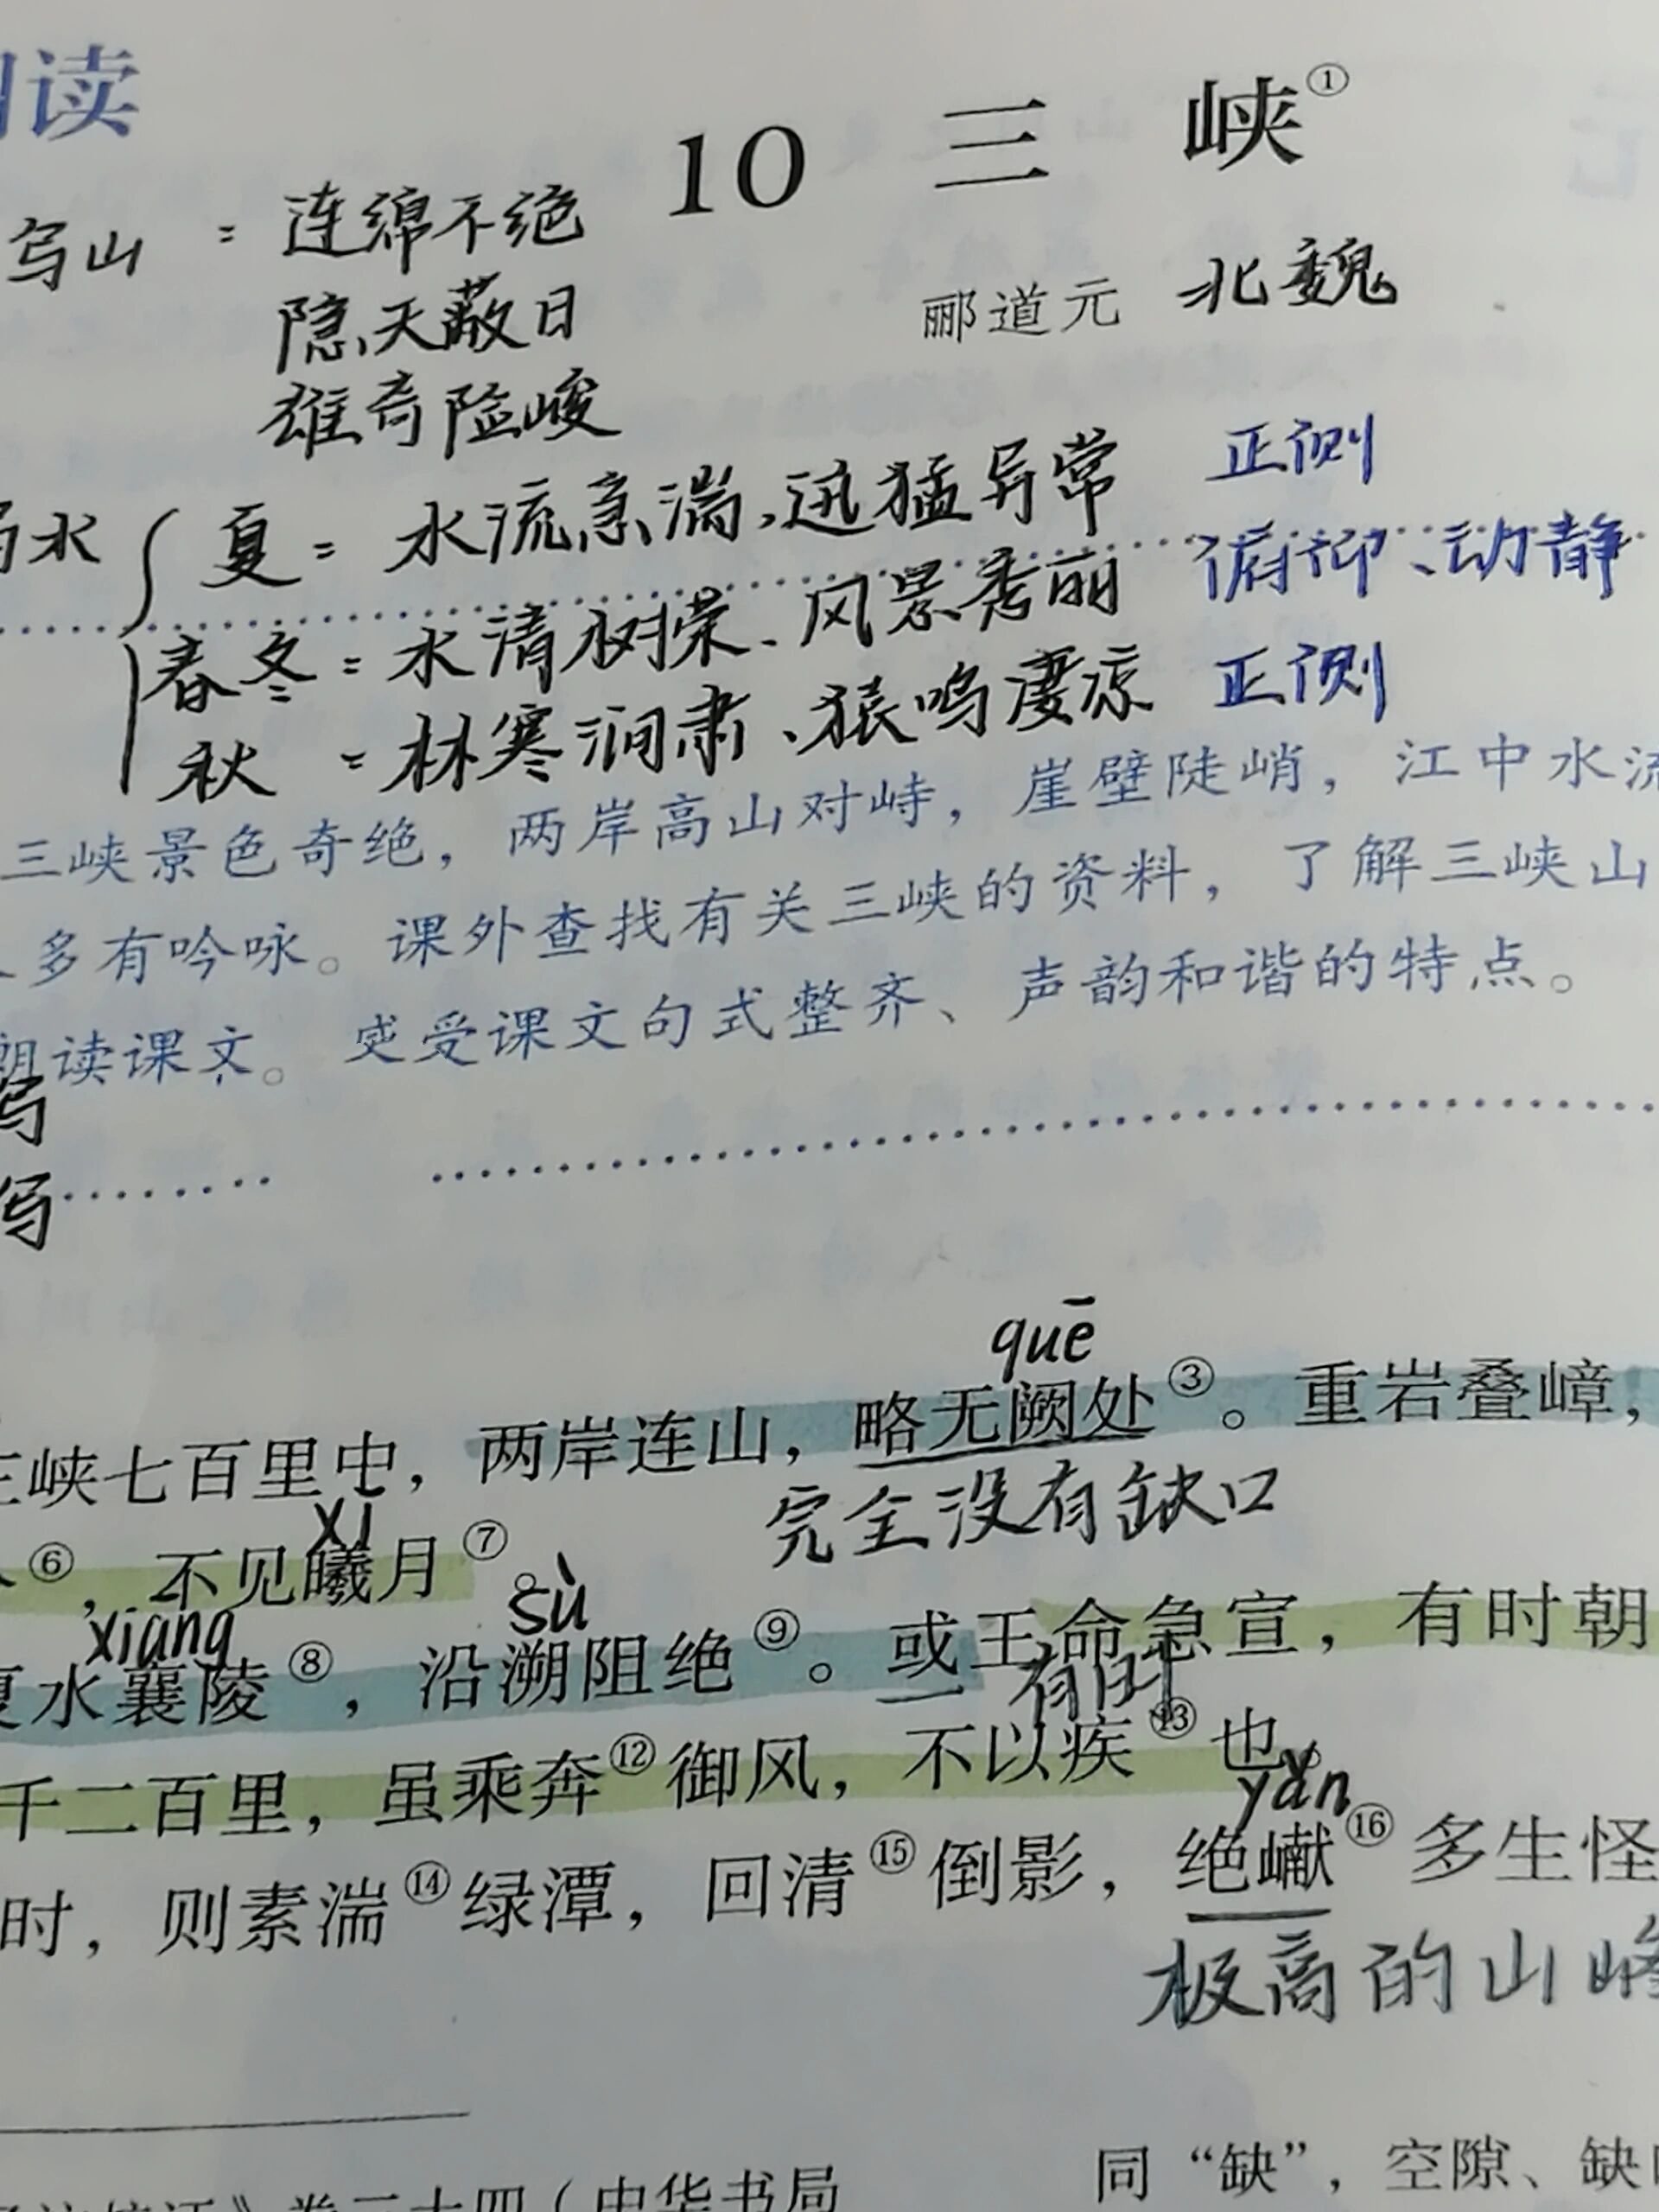 阅读
10 三峡①
写山：连绵不绝
郦道元 北魏
隐天蔽日
雄奇险峻
写水 夏：水流急湍、迅猛异常 正侧
春冬：水清树荣、风景秀丽 俯仰、动静
秋：林寒涧肃、猿鸣凄凉 正侧
三峡景色奇绝，两岸高山对峙，崖壁陡峭，江中水流
多有吟咏。课外查找有关三峡的资料，了解三峡山
朗读课文。感受课文句式整齐、声韵和谐的特点。
写
写
quē
三峡七百里中，两岸连山，略无阙处③。重岩叠嶂，
完全没有缺口
xī
⑥，不见曦月⑦。
xiāng sù
夏水襄陵⑧，沿溯阻绝⑨。或王命急宣，有时朝
有时
千二百里，虽乘奔⑫御风，不以疾⑬也。
yǎn
时，则素湍⑭绿潭，回清⑮倒影，绝巘⑯多生怪
极高的山峰
同“缺”，空隙、缺口
卷三十四（中华书局